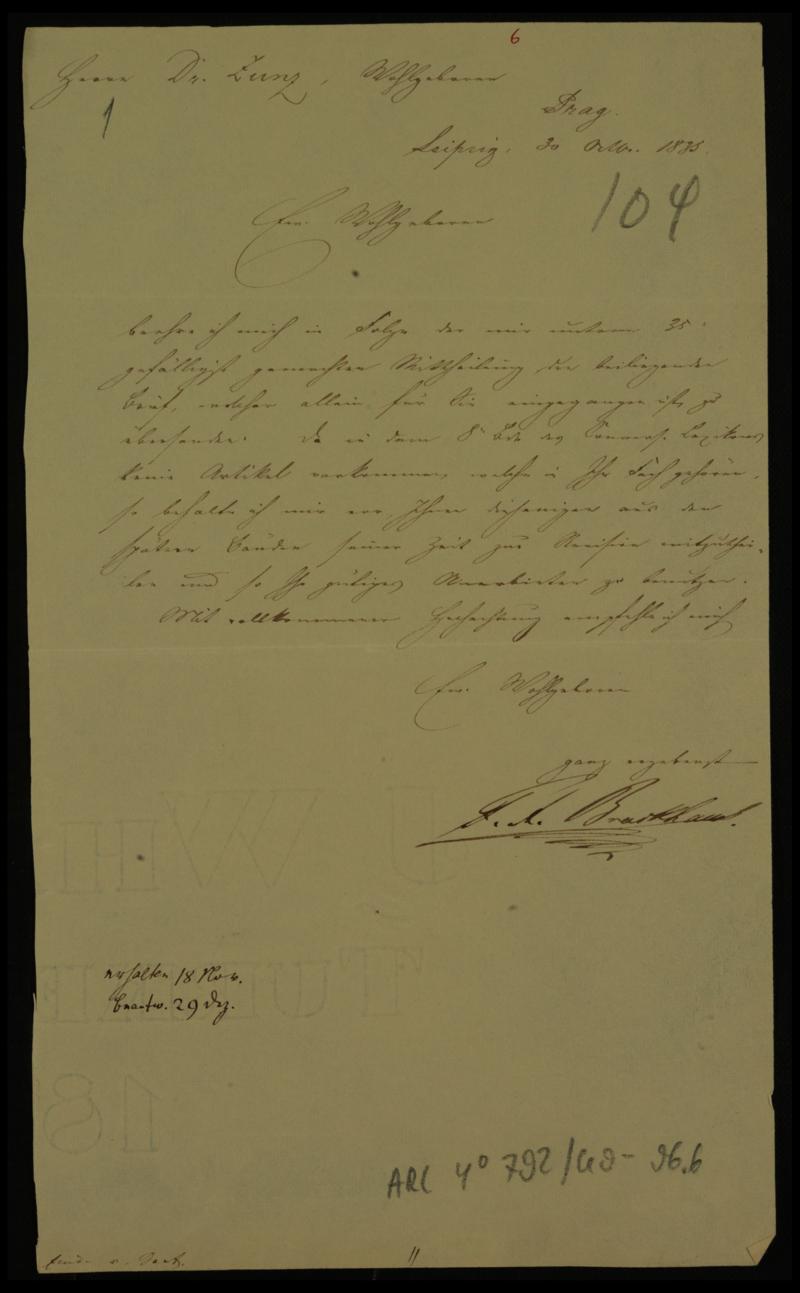 6
Herrn Dr. Zunz, Wohlgeboren
Prag.
1
Leipzig, 30 Octbr. 1835.
104
Ew. Wohlgeboren
beehre ich mich in Folge der mir unterm
gefälligst gemachten Mittheilung den beiliegenden
Brief, welcher allein für Sie eingegangen ist, zu
übersenden. Da in dem 8n Bde des Convers. Lexikons
keine Artikel vorkommen, welche in Ihr Fach gehören,
so behalte ich mir vor, Ihnen diejenigen aus den
spätern Bänden seiner Zeit zur Revision mitzuthei-
len und so Ihr gütiges Anerbieten zu benutzen.
Mit vollkommener Hochachtung empfehle ich mich
Ew. Wohlgeboren
ganz ergebenst
F. A. Brockhaus.
erhalten 18 Nov.
beantw. 29 Dez.
ARC 4° 792/